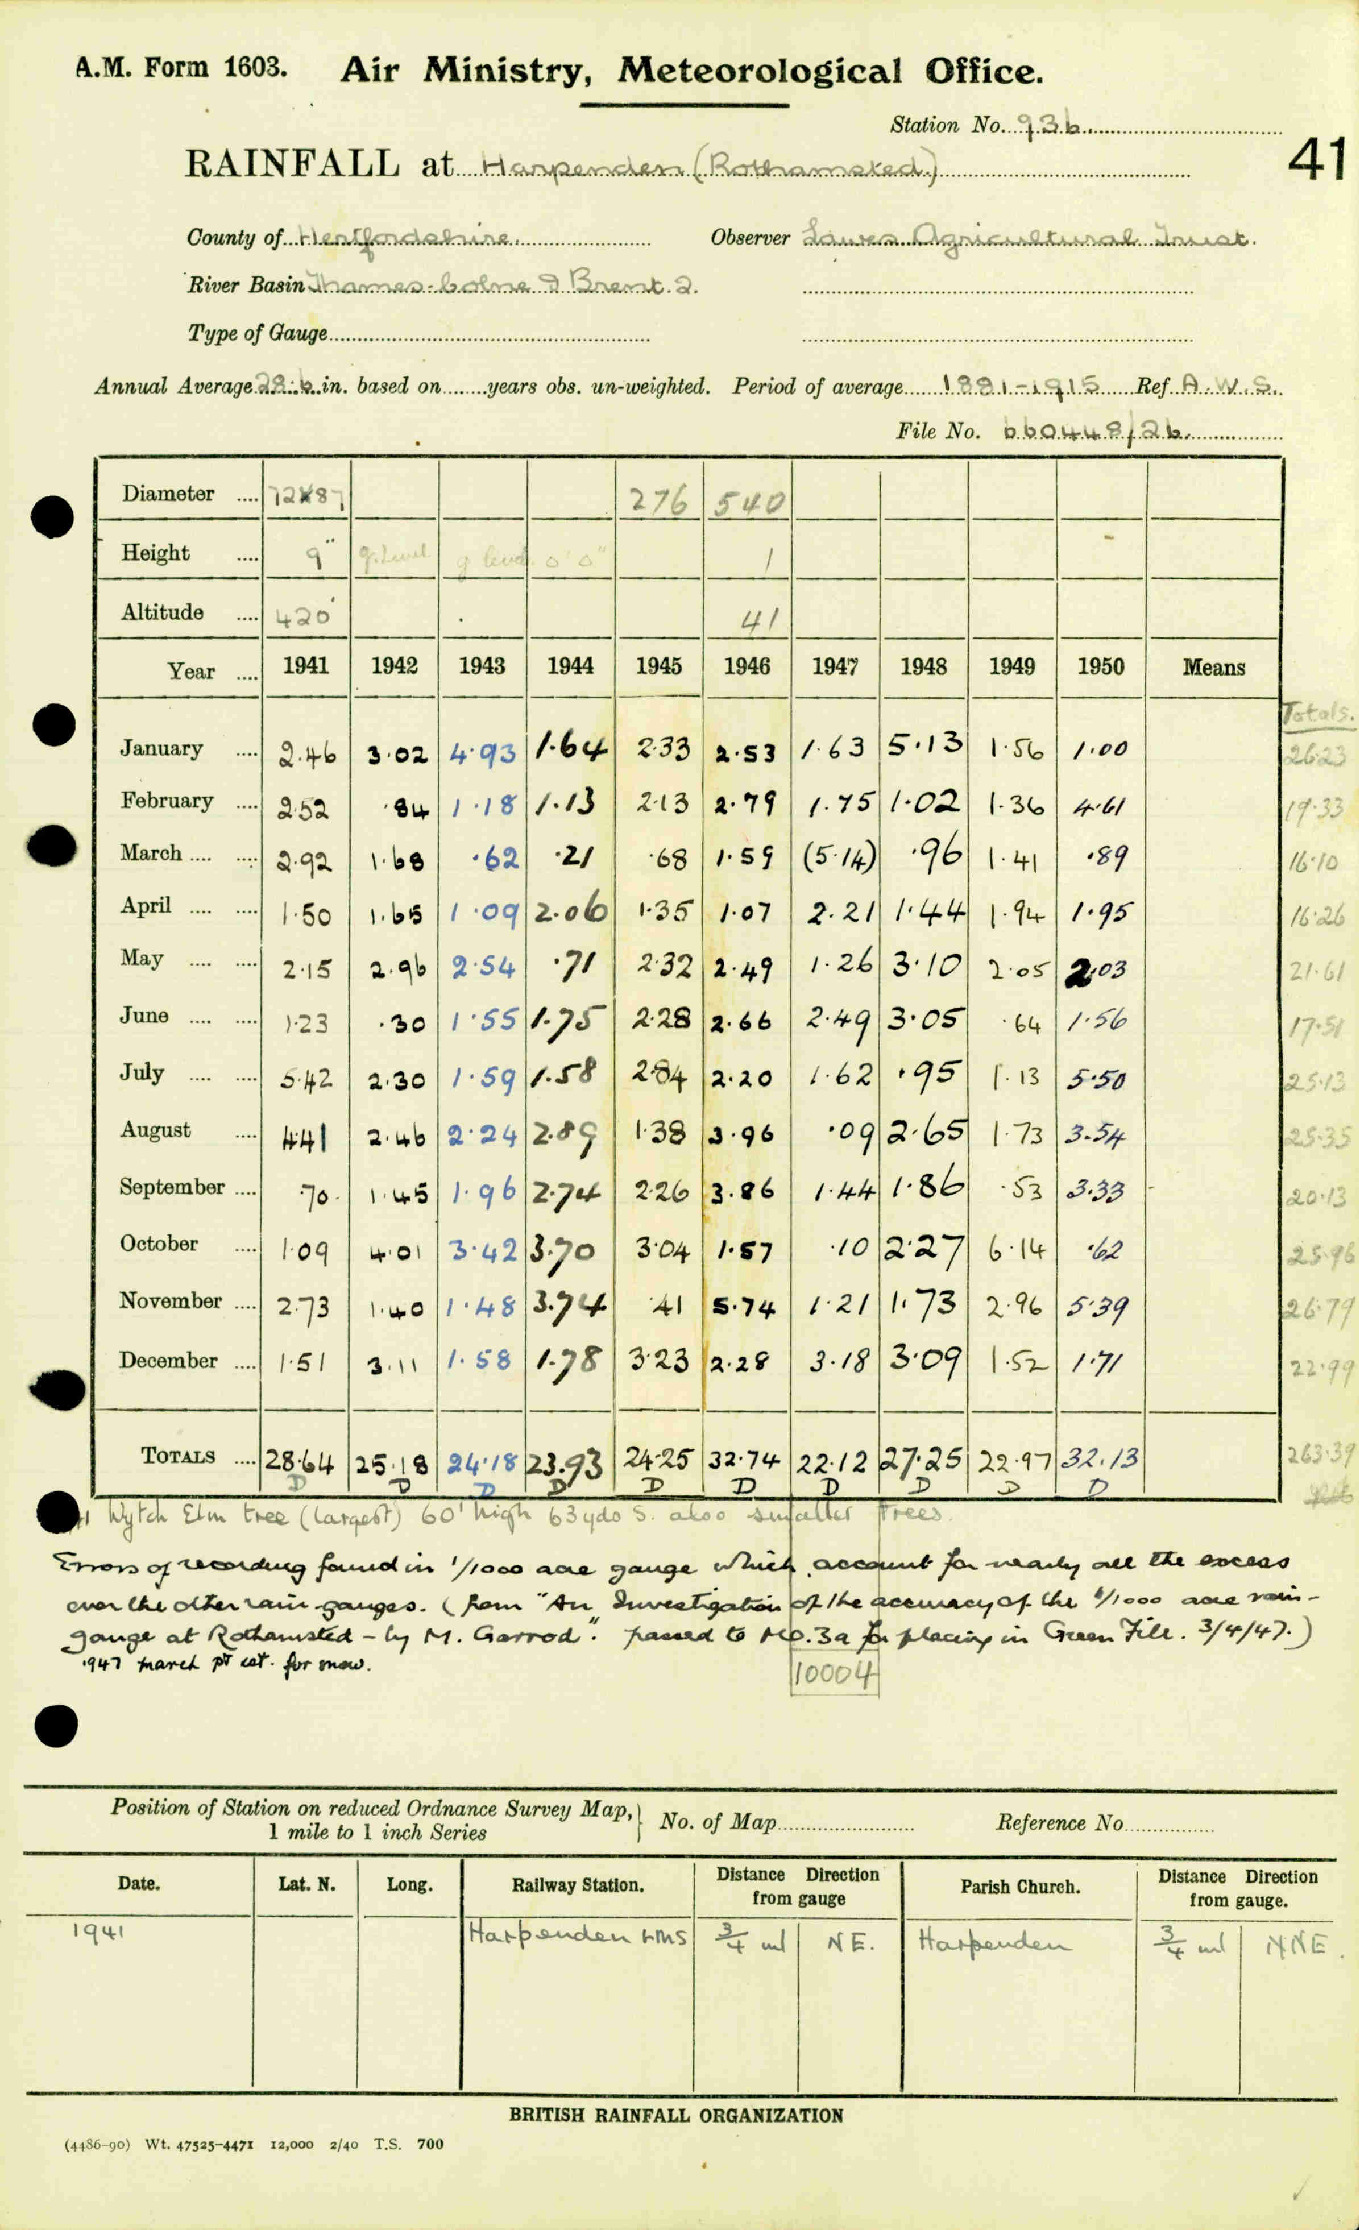 A.M. Form 1603. Air Ministry, Meteorological Office.
Station No. 936
RAINFALL at Harpenden (Rothamsted) 41
County of Hertfordshire. Observer Lawes Agricultural Trust.
River Basin Thames-Colne & Brent. 2.
Type of Gauge
Annual Average 28.6 in. based on years obs. un-weighted. Period of average 1881-1915 Ref A.W.S.
File No. 660448/26.
Diameter .... 72x87 276 540
Height .... 9" g. level g level 0' 0" 1
Altitude .... 420' 41
Year .... 1941 1942 1943 1944 1945 1946 1947 1948 1949 1950 Means
Totals.
January .... 2.46 3.02 4.93 1.64 2.33 2.53 1.63 5.13 1.56 1.00 26.23
February .... 2.52 .84 1.18 1.13 2.13 2.79 1.75 1.02 1.36 4.61 19.33
March .... .... 2.92 1.68 .62 .21 .68 1.59 (5.14) .96 1.41 .89 16.10
April .... .... 1.50 1.65 1.09 2.06 1.35 1.07 2.21 1.44 1.94 1.95 16.26
May .... .... 2.15 2.96 2.54 .71 2.32 2.49 1.26 3.10 2.05 2.03 21.61
June .... .... 1.23 .30 1.55 1.75 2.28 2.66 2.49 3.05 .64 1.56 17.51
July .... .... 5.42 2.30 1.59 1.58 2.84 2.20 1.62 .95 1.13 5.50 25.13
August .... 4.41 2.46 2.24 2.89 1.38 3.96 .09 2.65 1.73 3.54 25.35
September .... .70 1.45 1.96 2.74 2.26 3.86 1.44 1.86 .53 3.33 20.13
October .... 1.09 4.01 3.42 3.70 3.04 1.57 .10 2.27 6.14 .62 25.96
November .... 2.73 1.40 1.48 3.74 .41 5.74 1.21 1.73 2.96 5.39 26.79
December .... 1.51 3.11 1.58 1.78 3.23 2.28 3.18 3.09 1.52 1.71 22.99
TOTALS .... 28.64 25.18 24.18 23.93 24.25 32.74 22.12 27.25 22.97 32.13 263.39
D D D D D D D D D D
41 Wytch Elm tree (largest) 60' high 63yds S. also smaller trees.
Errors of recording found in 1/1000 acre gauge which account for nearly all the excess
over the other rain-gauges. (from "An Investigation of the accuracy of the 1/1000 acre rain-
gauge at Rothamsted - by M. Garrod". passed to MO.3a for placing in Green File. 3/4/47.)
1947 march pt est. for snow.
10004
Position of Station on reduced Ordnance Survey Map, 1 mile to 1 inch Series No. of Map Reference No
Date. Lat. N. Long. Railway Station. Distance Direction from gauge Parish Church. Distance Direction from gauge.
1941 Harpenden LMS 3/4 ml NE. Harpenden 3/4 ml NNE.
BRITISH RAINFALL ORGANIZATION
(4486-90) Wt. 47525-4471 12,000 2/40 T.S. 700